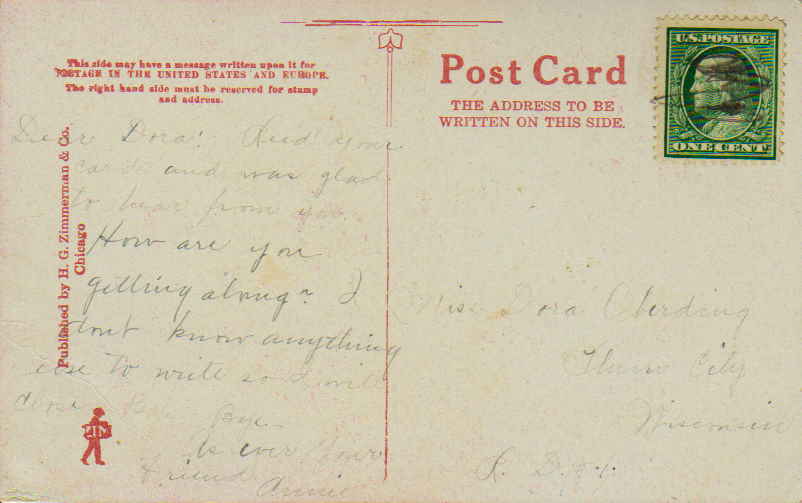 This side may have a message written upon it for
POSTAGE IN THE UNITED STATES AND EUROPE.
The right hand side must be reserved for stamp
and address.
Post Card
THE ADDRESS TO BE
WRITTEN ON THIS SIDE.
U.S. POSTAGE
ONE CENT
Published by H. G. Zimmerman & Co.
Chicago
ZIM
Dear Dora: Recd your
card and was glad
to hear from you.
How are you
getting along? I
dont know anything
else to write so I will
close Bye Bye
As ever Your
Friend
Annie
Miss Dora Oberding
City
Wisconsin